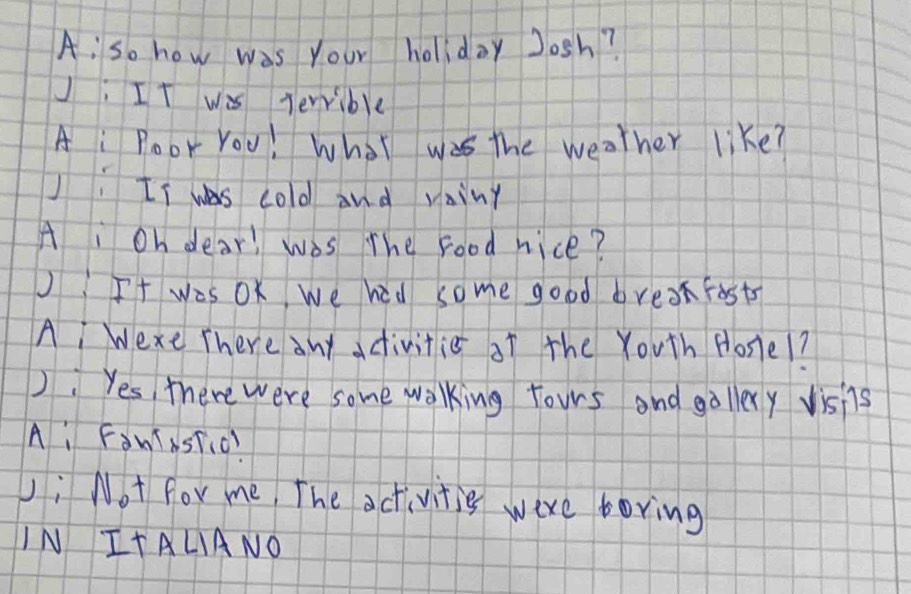 A: so how was your holiday Josh?
J: IT was Terrible
A: Poor you! What was the weather like?
J: IT was cold and rainy
A: Oh dear! was The Food nice?
J: It was OK, we had some good breakfasts
A: Were There any activities at the Youth Hostel?
J: Yes, there were some walking Tours and gallery visits
A: Fantastic!
J: Not for me, The activities were boring
IN ITALIANO